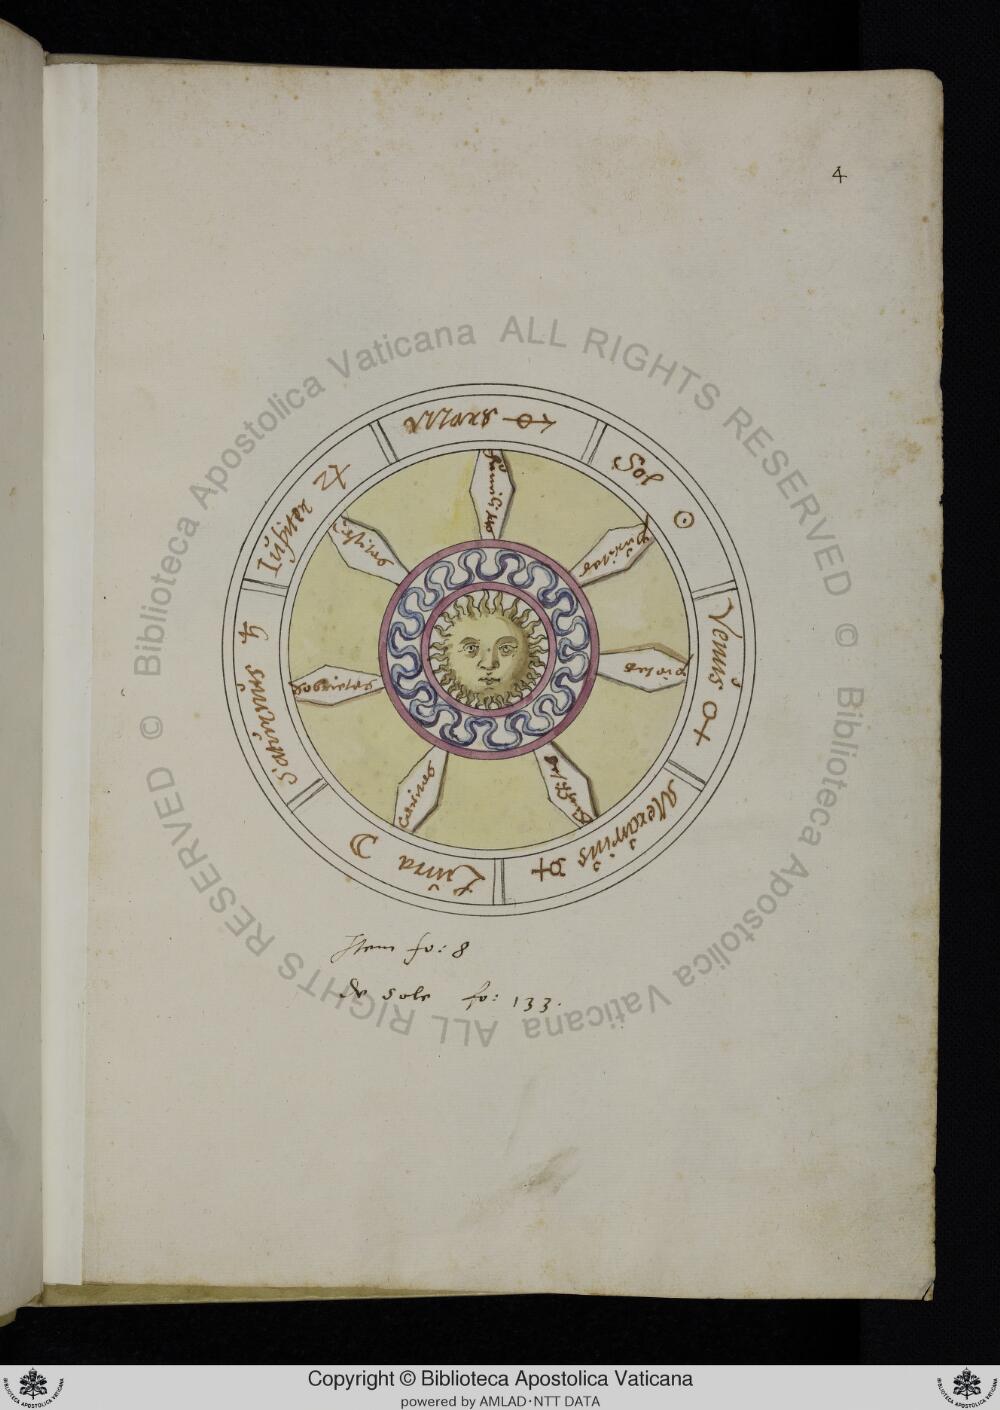 4
Mars ♂
Sol ☉
Venus ♀
Mercurius ☿
Luna ☽
Saturnus ♄
Jupiter ♃
Humilitas
Puritas
Castitas
Sobrietas
Caritas
Item fo: 8
de sole fo: 133.
© Biblioteca Apostolica Vaticana ALL RIGHTS RESERVED
© Biblioteca Apostolica Vaticana ALL RIGHTS RESERVED
Copyright © Biblioteca Apostolica Vaticana
powered by AMLAD·NTT DATA
BIBLIOTECA APOSTOLICA VATICANA
BIBLIOTECA APOSTOLICA VATICANA